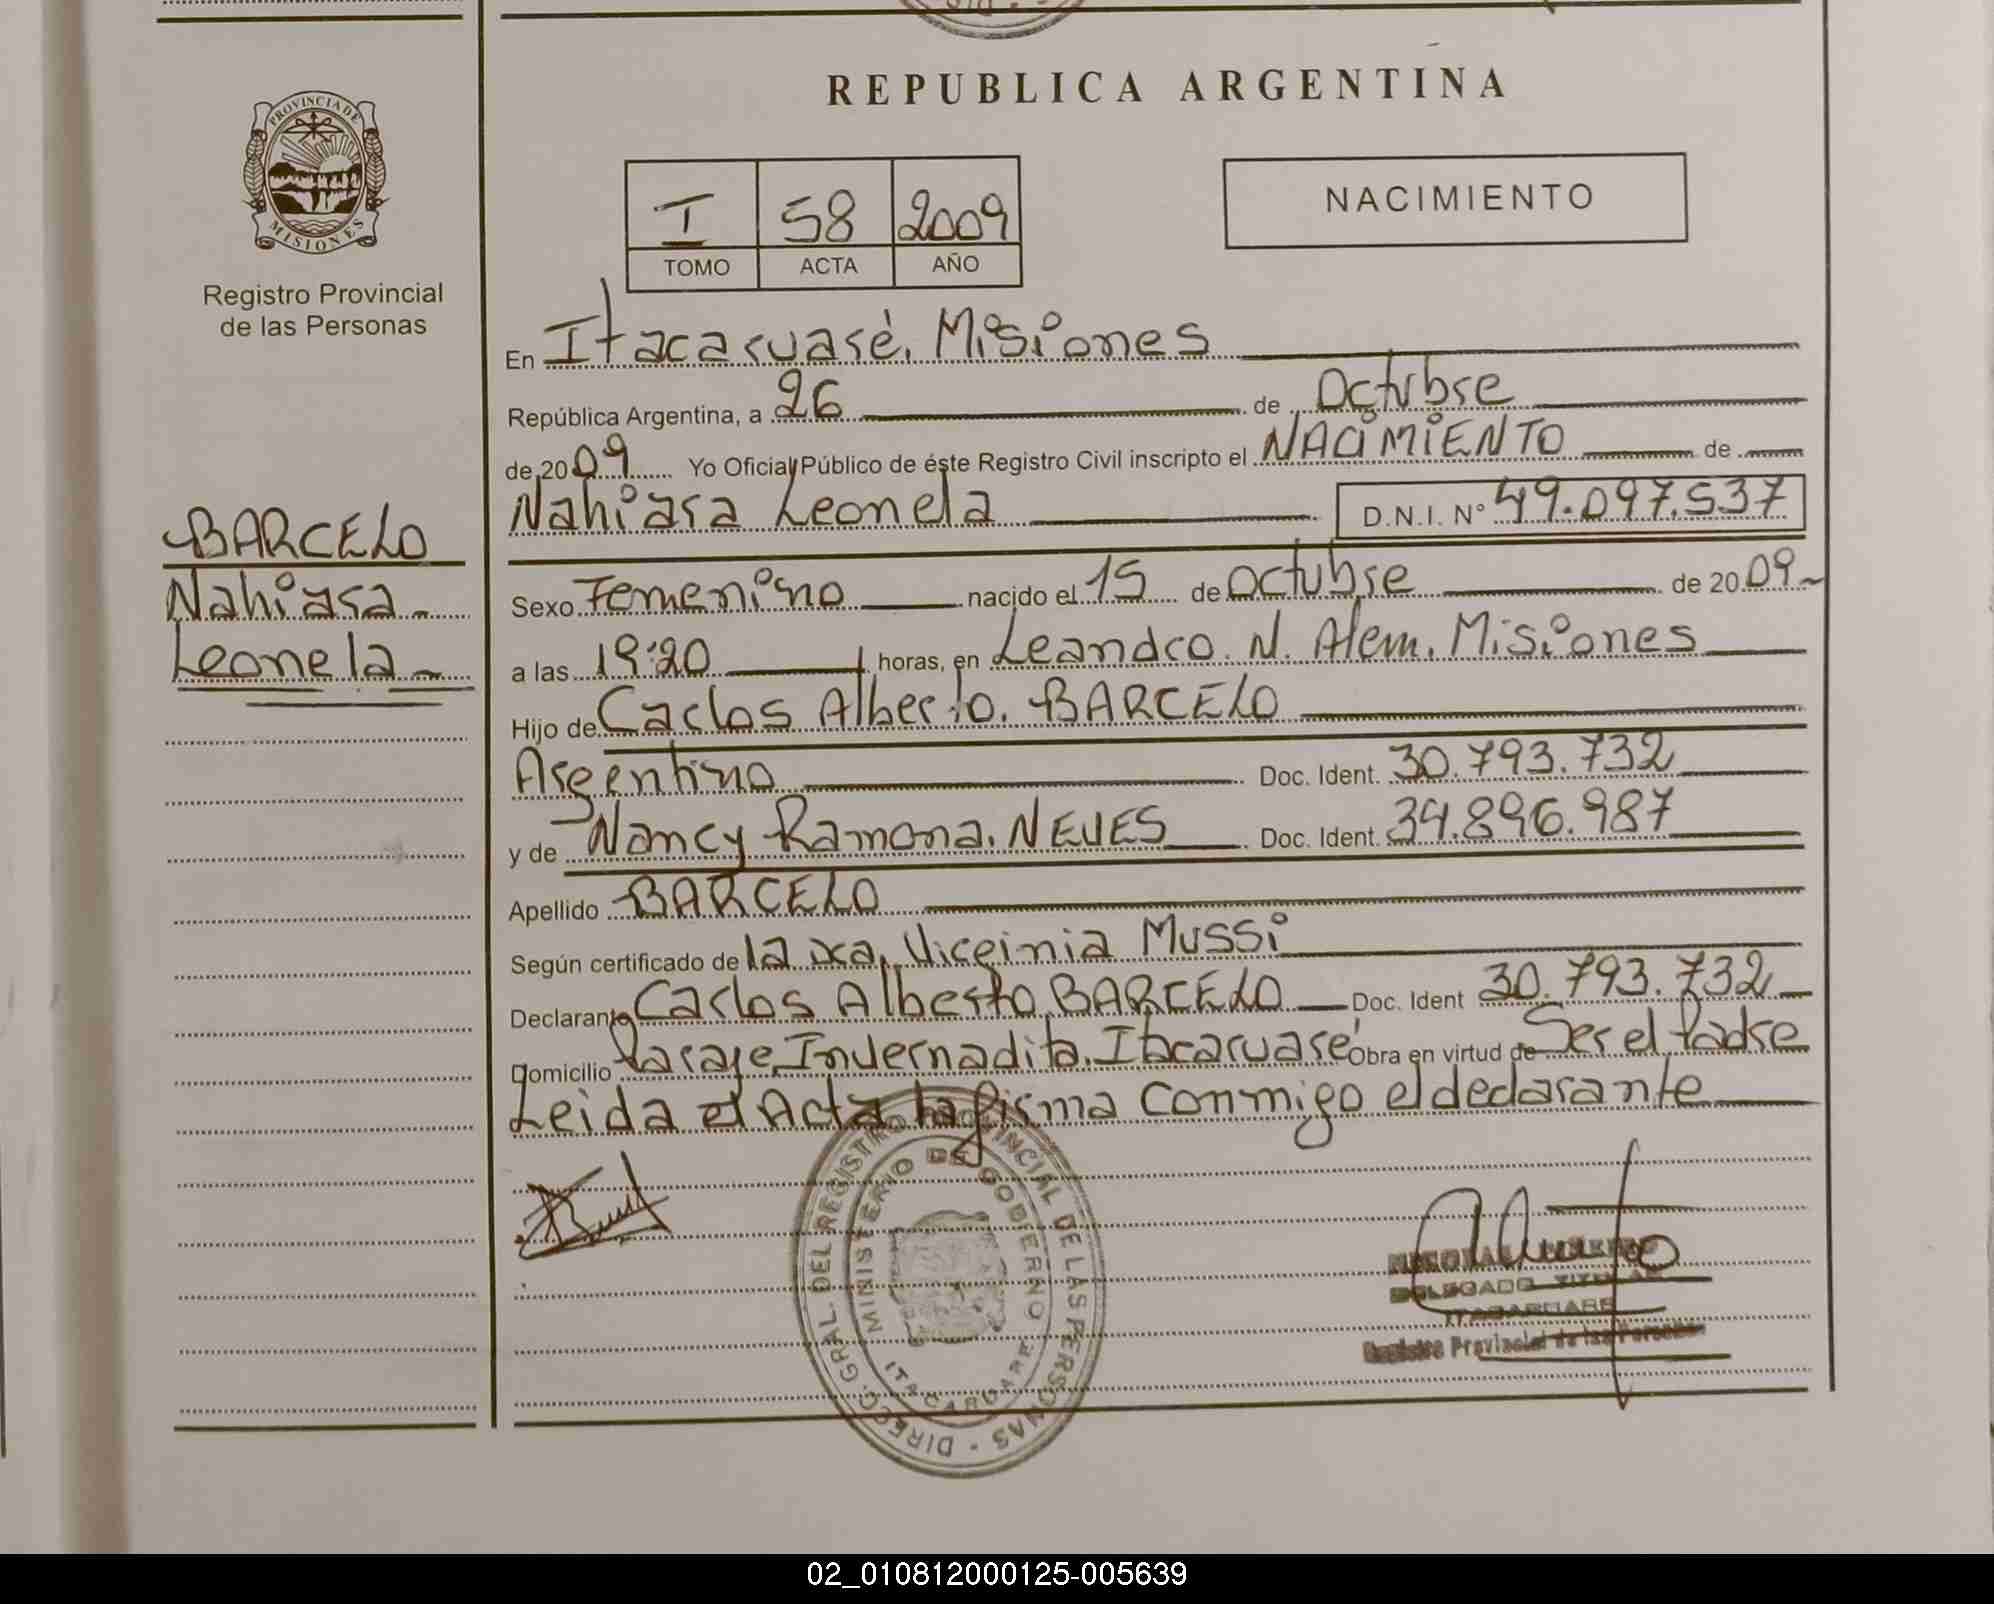 REPUBLICA ARGENTINA
PROVINCIA DE
MISIONES
Registro Provincial
de las Personas
I 58 2009
TOMO ACTA AÑO
NACIMIENTO
En Itacaruaré. Misiones
República Argentina, a 26 de Octubre
de 2009 Yo Oficial Público de éste Registro Civil inscripto el NACIMIENTO de
Nahiara Leonela D.N.I. N° 49.097.537
BARCELO
Nahiara
Leonela
Sexo Femenino nacido el 15 de Octubre de 2009
a las 19:20 horas, en Leandro. N. Alem. Misiones
Hijo de Carlos Alberto. BARCELO
Argentino Doc. Ident. 30.793.732
y de Nancy Ramona. NEVES Doc. Ident. 34.896.987
Apellido BARCELO
Según certificado de la Dra. Virginia Mussi
Declarante Carlos Alberto BARCELO Doc. Ident 30.793.732
Domicilio Paraje Invernadita. Itacaruaré Obra en virtud de Ser el Padre
Leida el Acta la firma conmigo el declarante
DIRECC. GRAL. DEL REGISTRO PROVINCIAL DE LAS PERSONAS
MINISTERIO DE GOBIERNO
ITACARUARE
DELEGADO TITULAR
ITACARUARE
Registro Provincial de las Personas
02_010812000125-005639